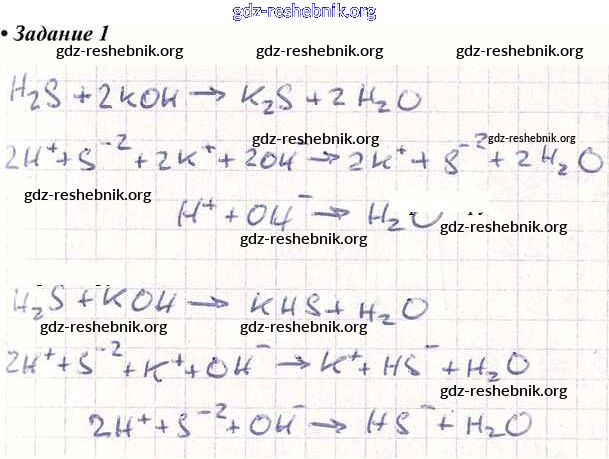 gdz-reshebnik.org
• Задание 1
gdz-reshebnik.org gdz-reshebnik.org gdz-reshebnik.org
H₂S + 2KOH → K₂S + 2H₂O
gdz-reshebnik.org gdz-reshebnik.org
2H⁺ + S⁻² + 2K⁺ + 2OH⁻ → 2K⁺ + S⁻² + 2H₂O
gdz-reshebnik.org
H⁺ + OH⁻ → H₂O
gdz-reshebnik.org gdz-reshebnik.org
H₂S + KOH → KHS + H₂O
gdz-reshebnik.org gdz-reshebnik.org
2H⁺ + S⁻² + K⁺ + OH⁻ → K⁺ + HS⁻ + H₂O
gdz-reshebnik.org
2H⁺ + S⁻² + OH⁻ → HS⁻ + H₂O
gdz-reshebnik.org